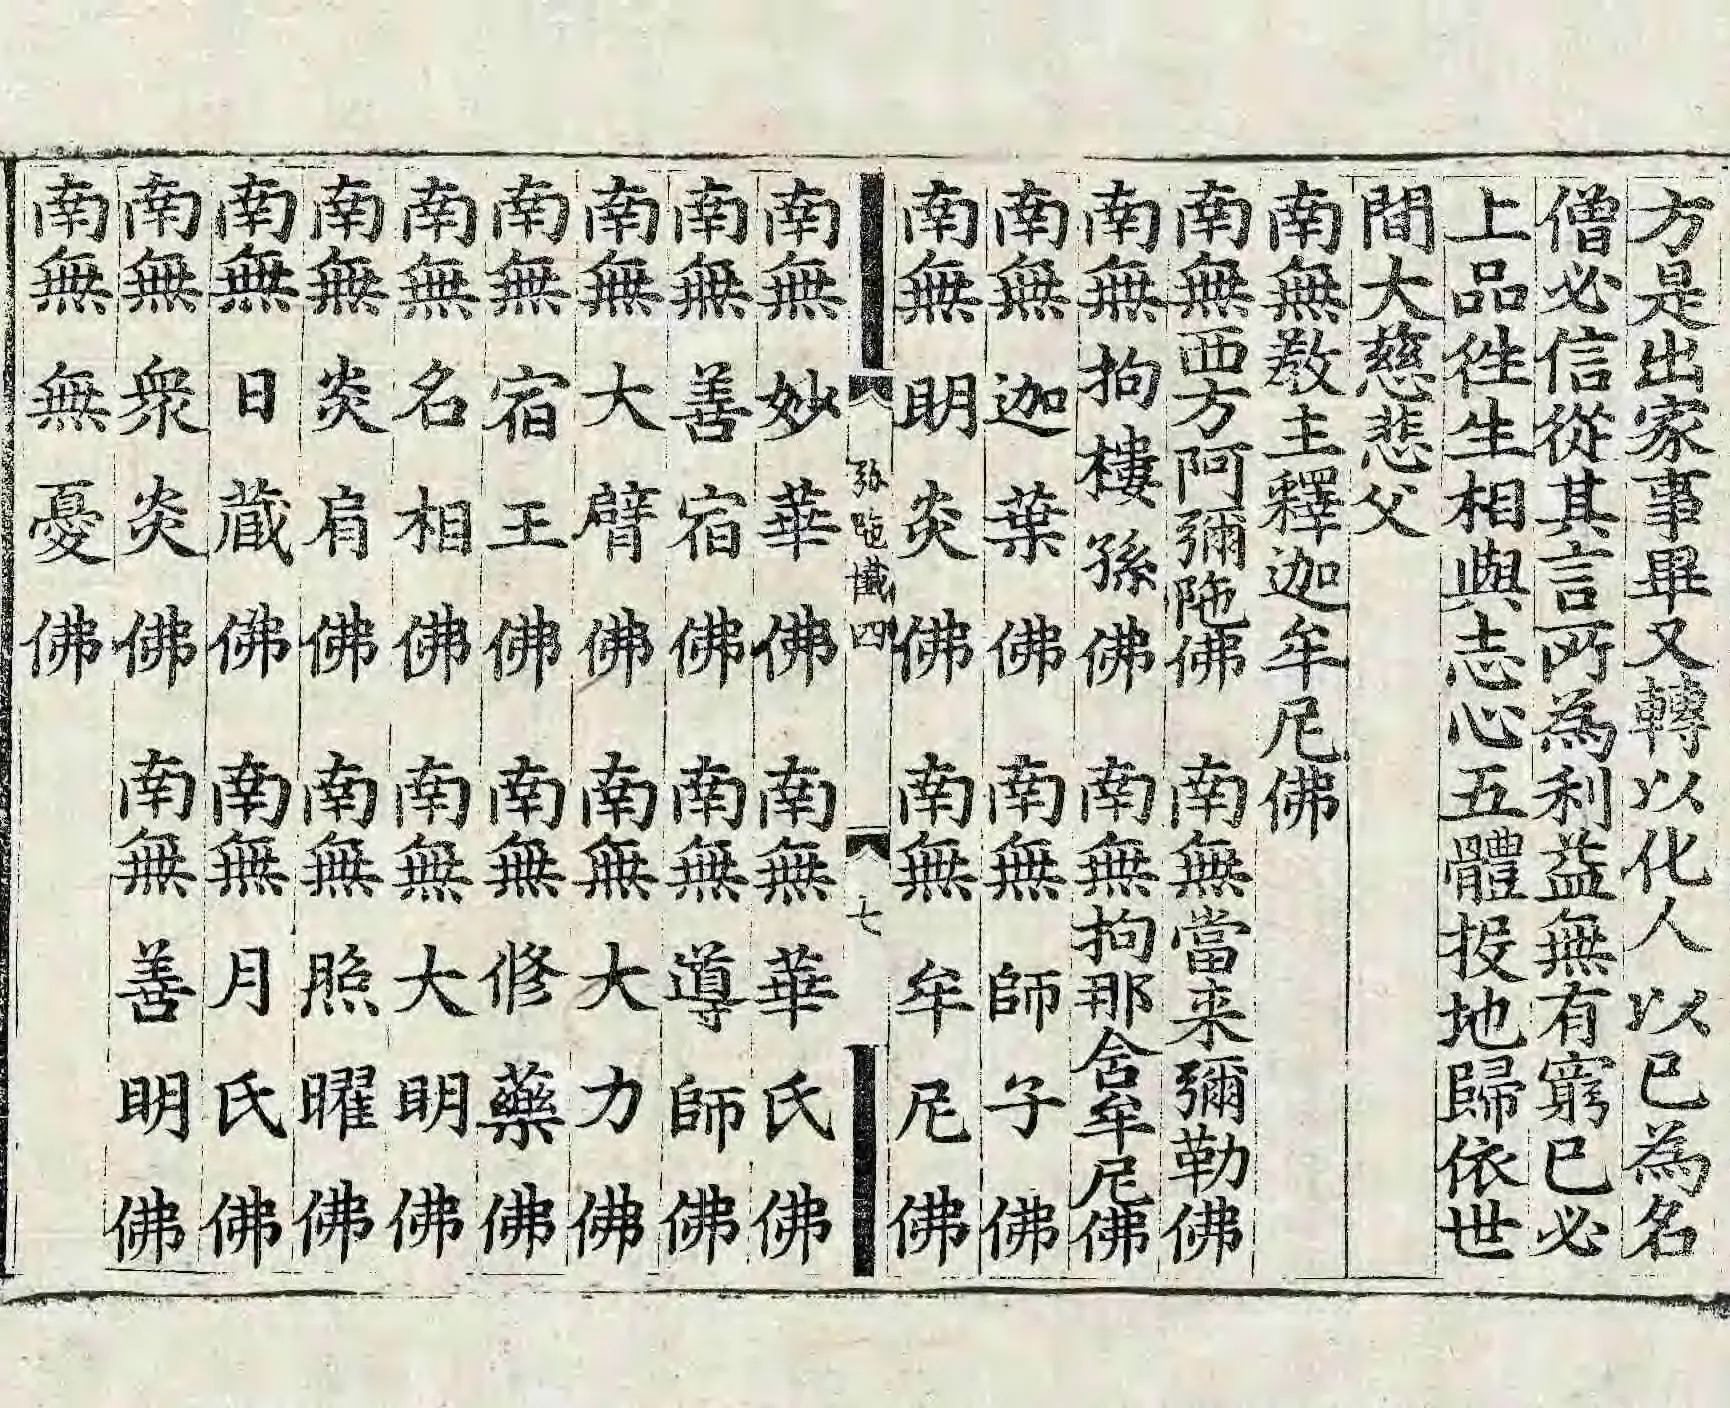 方是出家事畢又轉以化人以已為名
僧必信從其言所為利益無有窮已必
上品徃生相與志心五體投地歸依世
間大慈悲父
南無敎主釋迦牟尼佛
南無西方阿彌陁佛　南無當来彌勒佛
南無拘樓孫佛　南無拘那舍牟尼佛
南無迦葉佛　南無師子佛
南無明炎佛　南無牟尼佛
弥陁懴四　七
南無妙華佛　南無華氏佛
南無善宿佛　南無導師佛
南無大臂佛　南無大力佛
南無宿王佛　南無修藥佛
南無名相佛　南無大明佛
南無炎肩佛　南無照曜佛
南無日藏佛　南無月氏佛
南無衆炎佛　南無善明佛
南無無憂佛